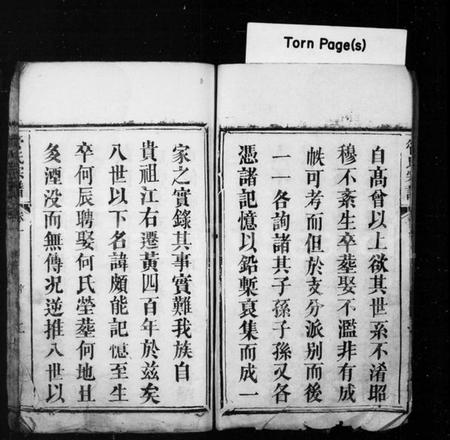 Torn Page(s)
自高曾以上欲其世系不淆昭
穆不紊生卒塟娶不濫非有成
帙可考而但於支分派別而後
一一各詢諸其子孫子孫又各
憑諸記憶以鉛槧裒集而成一
家之實錄其事實難我族自
貴祖江右遷黃四百年於茲矣
八世以下名諱頗能記憶至生
卒何辰聘娶何氏塋塟何地且
多湮没而無傳况逆推八世以
氏宗譜